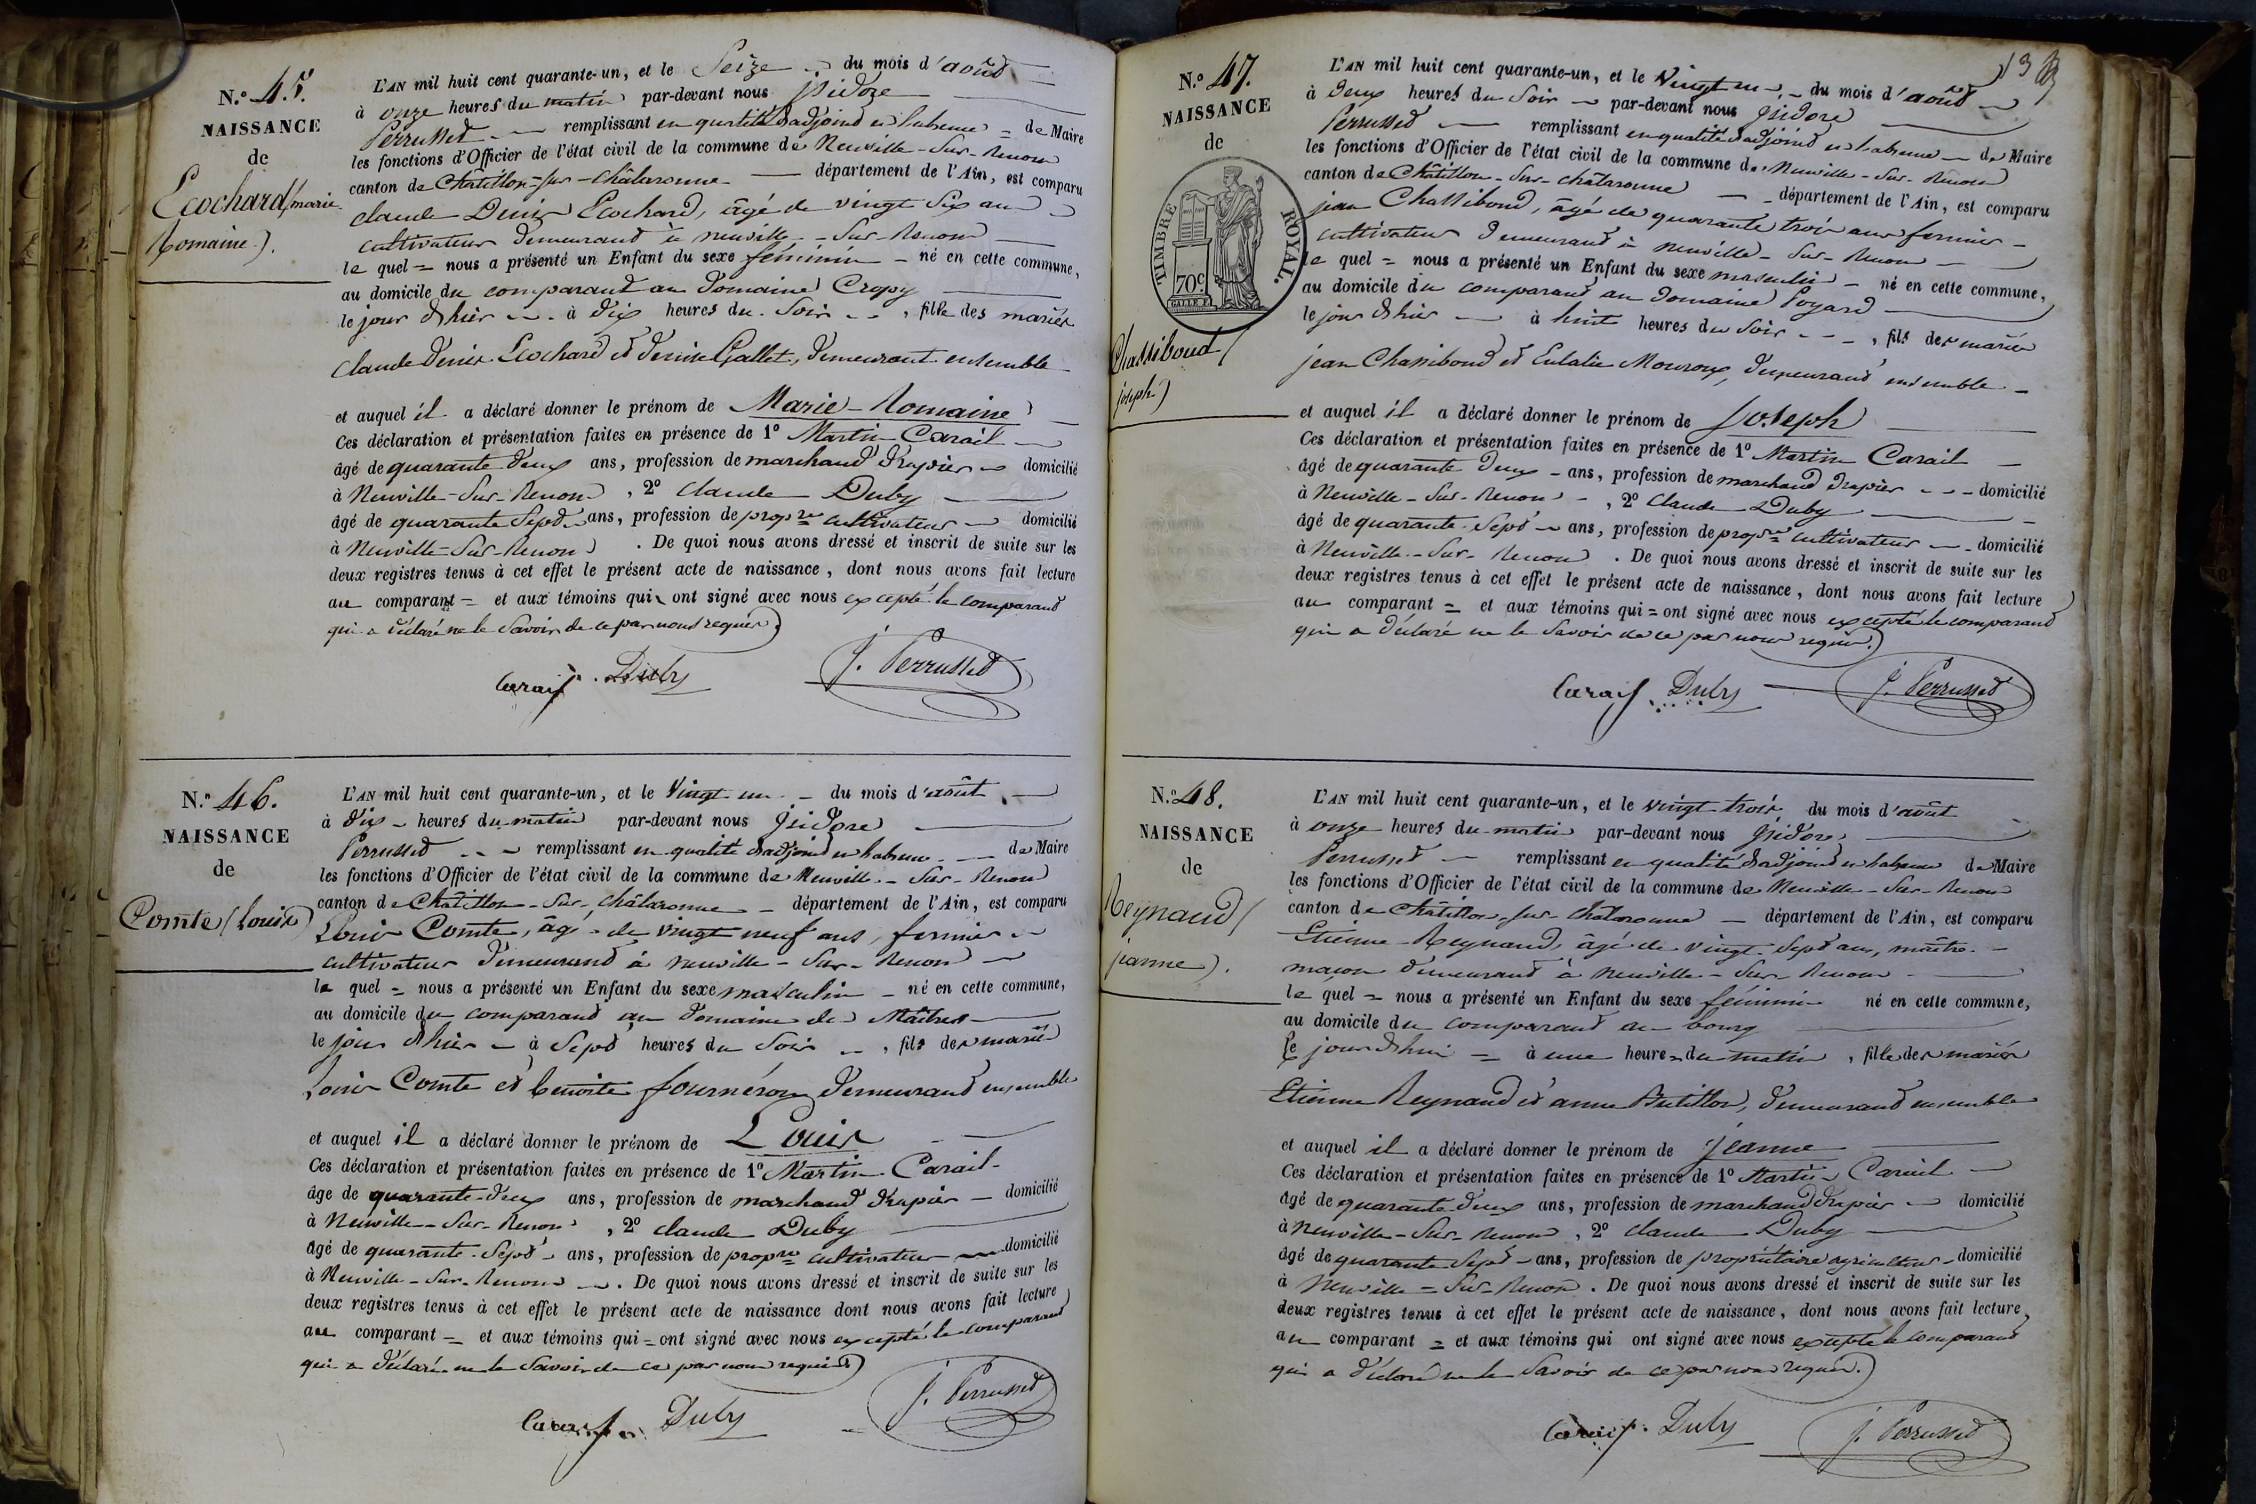 N.º 45.
NAISSANCE
de
Ecochard (marie
Romaine).
L'AN mil huit cent quarante-un, et le Seize du mois d'août
à onze heures du matin par-devant nous isidore
Perrusset remplissant en qualité d'adjoint en l'absence = de Maire
les fonctions d'Officier de l'état civil de la commune de Neuville-Sur-Renon
canton de Châtillon-sur-Châlaronne département de l'Ain, est comparu
claude Denis Ecochard, âgé de vingt Six ans
cultivateur demeurant à neuville-Sur-Renon
le quel = nous a présenté un Enfant du sexe féminin né en cette commune,
au domicile du comparant au domaine Cropy
le jour d'hier à dix heures du Soir, fille des mariés
claude denis Ecochard et denise Gallet, demeurant ensemble
et auquel il a déclaré donner le prénom de Marie-Romaine
Ces déclaration et présentation faites en présence de 1º Martin Carail
âgé de quarante deux ans, profession de marchand drapier domicilié
à Neuville-Sur-Renon, 2º claude Duby
âgé de quarante Sept ans, profession de propre cultivateur domicilié
à Neuville-Sur-Renon. De quoi nous avons dressé et inscrit de suite sur les
deux registres tenus à cet effet le présent acte de naissance, dont nous avons fait lecture
au comparant = et aux témoins qui ont signé avec nous excepté le comparant
qui a déclaré ne le Savoir de ce par nous requis
Carail Duby J. Perrusset
N.º 46.
NAISSANCE
de
Comte (Louis)
L'AN mil huit cent quarante-un, et le Vingt un du mois d'août
à dix heures du matin par-devant nous isidore
Perrusset remplissant en qualité d'adjoint en l'absence de Maire
les fonctions d'Officier de l'état civil de la commune de Neuville-Sur-Renon
canton de Châtillon-Sur-Châlaronne département de l'Ain, est comparu
Louis Comte, âgé de vingt neuf ans, fermier
cultivateur demeurant à neuville-Sur-Renon
le quel = nous a présenté un Enfant du sexe masculin né en cette commune,
au domicile du comparant au domaine des
le jour d'hier à Sept heures du Soir, fils des mariés
Louis Comte et benoite fournéron demeurant ensemble
et auquel il a déclaré donner le prénom de Louis
Ces déclaration et présentation faites en présence de 1º Martin Carail
âge de quarante-deux ans, profession de marchand drapier domicilié
à Neuville-Sur-Renon, 2º claude Duby
âgé de quarante-Sept ans, profession de propre cultivateur domicilié
à Neuville-Sur-Renon. De quoi nous avons dressé et inscrit de suite sur les
deux registres tenus à cet effet le présent acte de naissance dont nous avons fait lecture
au comparant = et aux témoins qui = ont signé avec nous excepté le comparant
qui a déclaré ne le Savoir de ce par nous requis
Carail Duby J. Perrusset
N.º 47.
NAISSANCE
de
TIMBRE ROYAL.
70c
Chassiboud (
joseph)
L'AN mil huit cent quarante-un, et le Vingt un du mois d'août
à deux heures du Soir par-devant nous isidore
Perrusset remplissant en qualité d'adjoint en l'absence de Maire
les fonctions d'Officier de l'état civil de la commune de Neuville-Sur-Renon
canton de Châtillon-Sur-châlaronne département de l'Ain, est comparu
jean Chassiboud, âgé de quarante trois ans fermier
cultivateur demeurant à neuville-Sur-Renon
le quel = nous a présenté un Enfant du sexe masculin né en cette commune,
au domicile du comparant au domaine Poyard
le jour d'hier à huit heures du Soir, fils des mariés
jean Chassiboud et Eulalie Mouroux, demeurant ensemble
et auquel il a déclaré donner le prénom de Joseph
Ces déclaration et présentation faites en présence de 1º Martin Carail
âgé de quarante deux ans, profession de marchand drapier domicilié
à Neuville-Sur-Renon, 2º Claude Duby
âgé de quarante-Sept ans, profession de propre cultivateur domicilié
à Neuville-Sur-Renon. De quoi nous avons dressé et inscrit de suite sur les
deux registres tenus à cet effet le présent acte de naissance, dont nous avons fait lecture
au comparant = et aux témoins qui = ont signé avec nous excepté le comparant
qui a déclaré ne le Savoir de ce par nous requis.
Carail Duby J. Perrusset
N.º 48.
NAISSANCE
de
Reynaud (
jeanne).
L'AN mil huit cent quarante-un, et le vingt trois du mois d'août
à onze heures du matin par-devant nous isidore
Perrusset remplissant en qualité d'adjoint en l'absence de Maire
les fonctions d'Officier de l'état civil de la commune de Neuville-Sur-Renon
canton de Châtillon-sur-Châlaronne département de l'Ain, est comparu
Etienne Reynaud, âgé de vingt-Sept ans, maître
maçon demeurant à neuville-Sur-Renon
le quel = nous a présenté un Enfant du sexe féminin né en cette commune,
au domicile du comparant au bourg
Le jour d'hui = à une heure du matin, fille des mariés
Etienne Reynaud et anne Butillon, demeurant ensemble
et auquel il a déclaré donner le prénom de jeanne
Ces déclaration et présentation faites en présence de 1º Martin Carail
âgé de quarante deux ans, profession de marchand drapier domicilié
à neuville-Sur-Renon, 2º claude Duby
âgé de quarante Sept ans, profession de propriétaire agriculteur domicilié
à Neuville=Sur-Renon. De quoi nous avons dressé et inscrit de suite sur les
deux registres tenus à cet effet le présent acte de naissance, dont nous avons fait lecture
au comparant = et aux témoins qui ont signé avec nous excepté le comparant
qui a déclaré ne le Savoir de ce par nous requis.
Carail Duby J. Perrusset